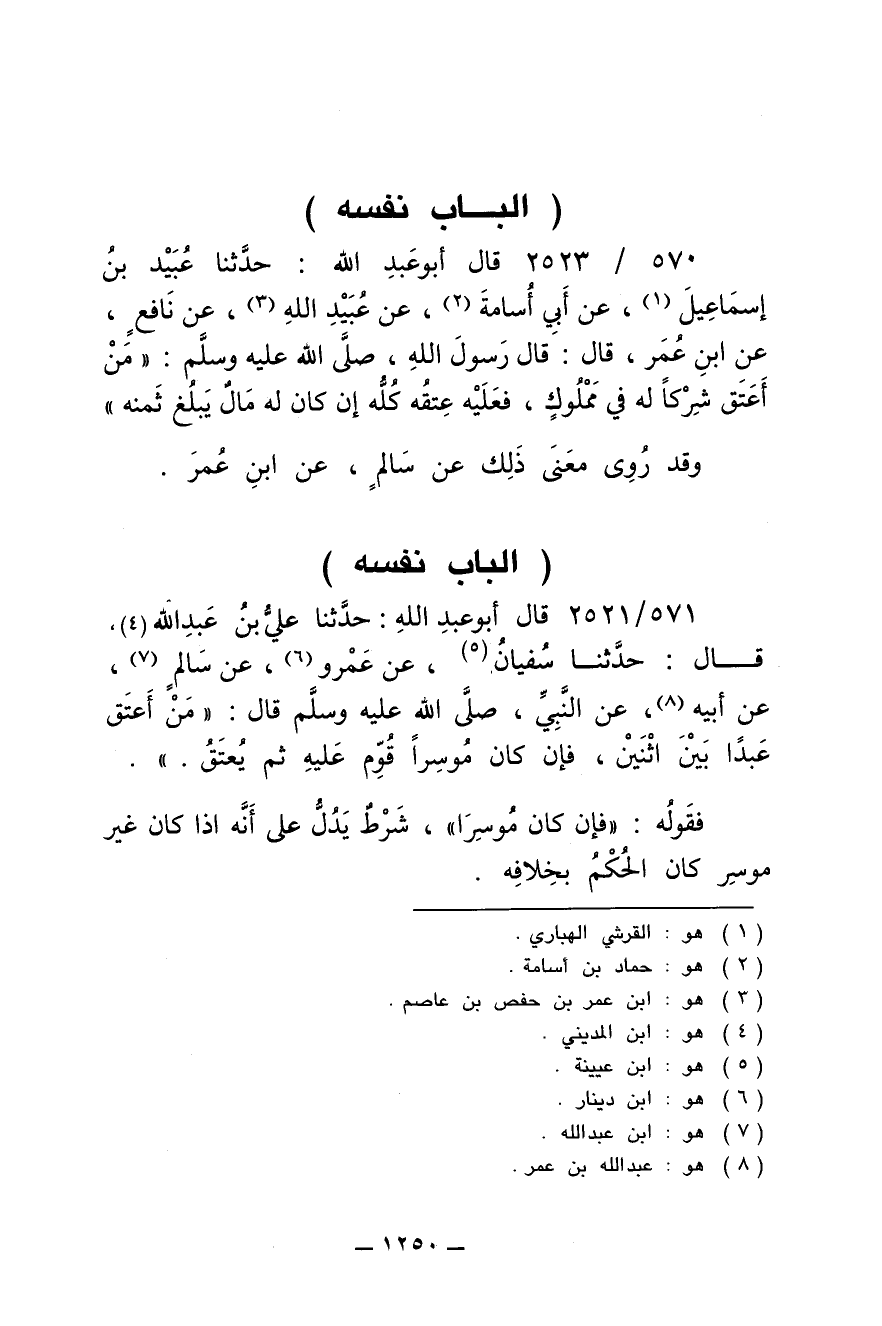 ( البـــاب نفسه )
٥٧٠ / ٢٥٢٣ قال أبوعَبدِ الله : حدَّثنا عُبَيْد بنُ
إسمَاعِيلَ (١) ، عن أَبِي أُسامةَ (٢) ، عن عُبَيْدِ اللهِ (٣) ، عن نَافعٍ ،
عن ابنِ عُمَر ، قال : قال رَسولَ اللهِ ، صلَّى الله عليه وسلَّم : « مَنْ
أَعتَق شِرْكاً له في مَمْلُوكٍ ، فعَلَيْه عِتقُه كُلُّه إن كان له مَالٌ يَبلُغ ثَمنه »
وقد رُوِى معَنَى ذَلِك عن سَالمٍ ، عن ابنِ عُمرَ .
( الباب نفسه )
٢٥٢١/٥٧١ قال أبوعبدِ اللهِ : حدَّثنا عليُّ بنُ عَبدِالله (٤)،
قـــــال : حدَّثنـــا سُفيانُ (٥) ، عن عَمْرو (٦) ، عن سَالمٍ (٧) ،
عن أبيه (٨)، عن النَّبِيِّ ، صلَّى الله عليه وسلَّم قال : « مَنْ أَعتَق
عَبدًا بَيْنَ اثْنَيْن ، فإن كان مُوسِراً قُوِّم عَليهِ ثم يُعتَقُ . » .
فقَولُه : «فإن كان مُوسِرَا» ، شَرْطٌ يَدُلُّ على أَنَّه اذا كان غير
موسِر كان الحُكْمُ بخِلافِه .
( ١ ) هو : القرشي الهباري .
( ٢ ) هو : حماد بن أسامة .
( ٣ ) هو : ابن عمر بن حفص بن عاصم .
( ٤ ) هو : ابن المديني .
( ٥ ) هو : ابن عيينة .
( ٦ ) هو : ابن دينار .
( ٧ ) هو : ابن عبدالله .
( ٨ ) هو : عبدالله بن عمر .
ـ ١٢٥٠ ـ